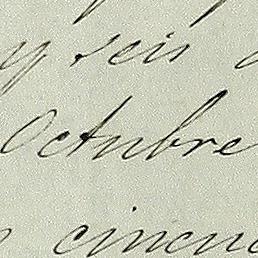 y seis
Octubre
cincu